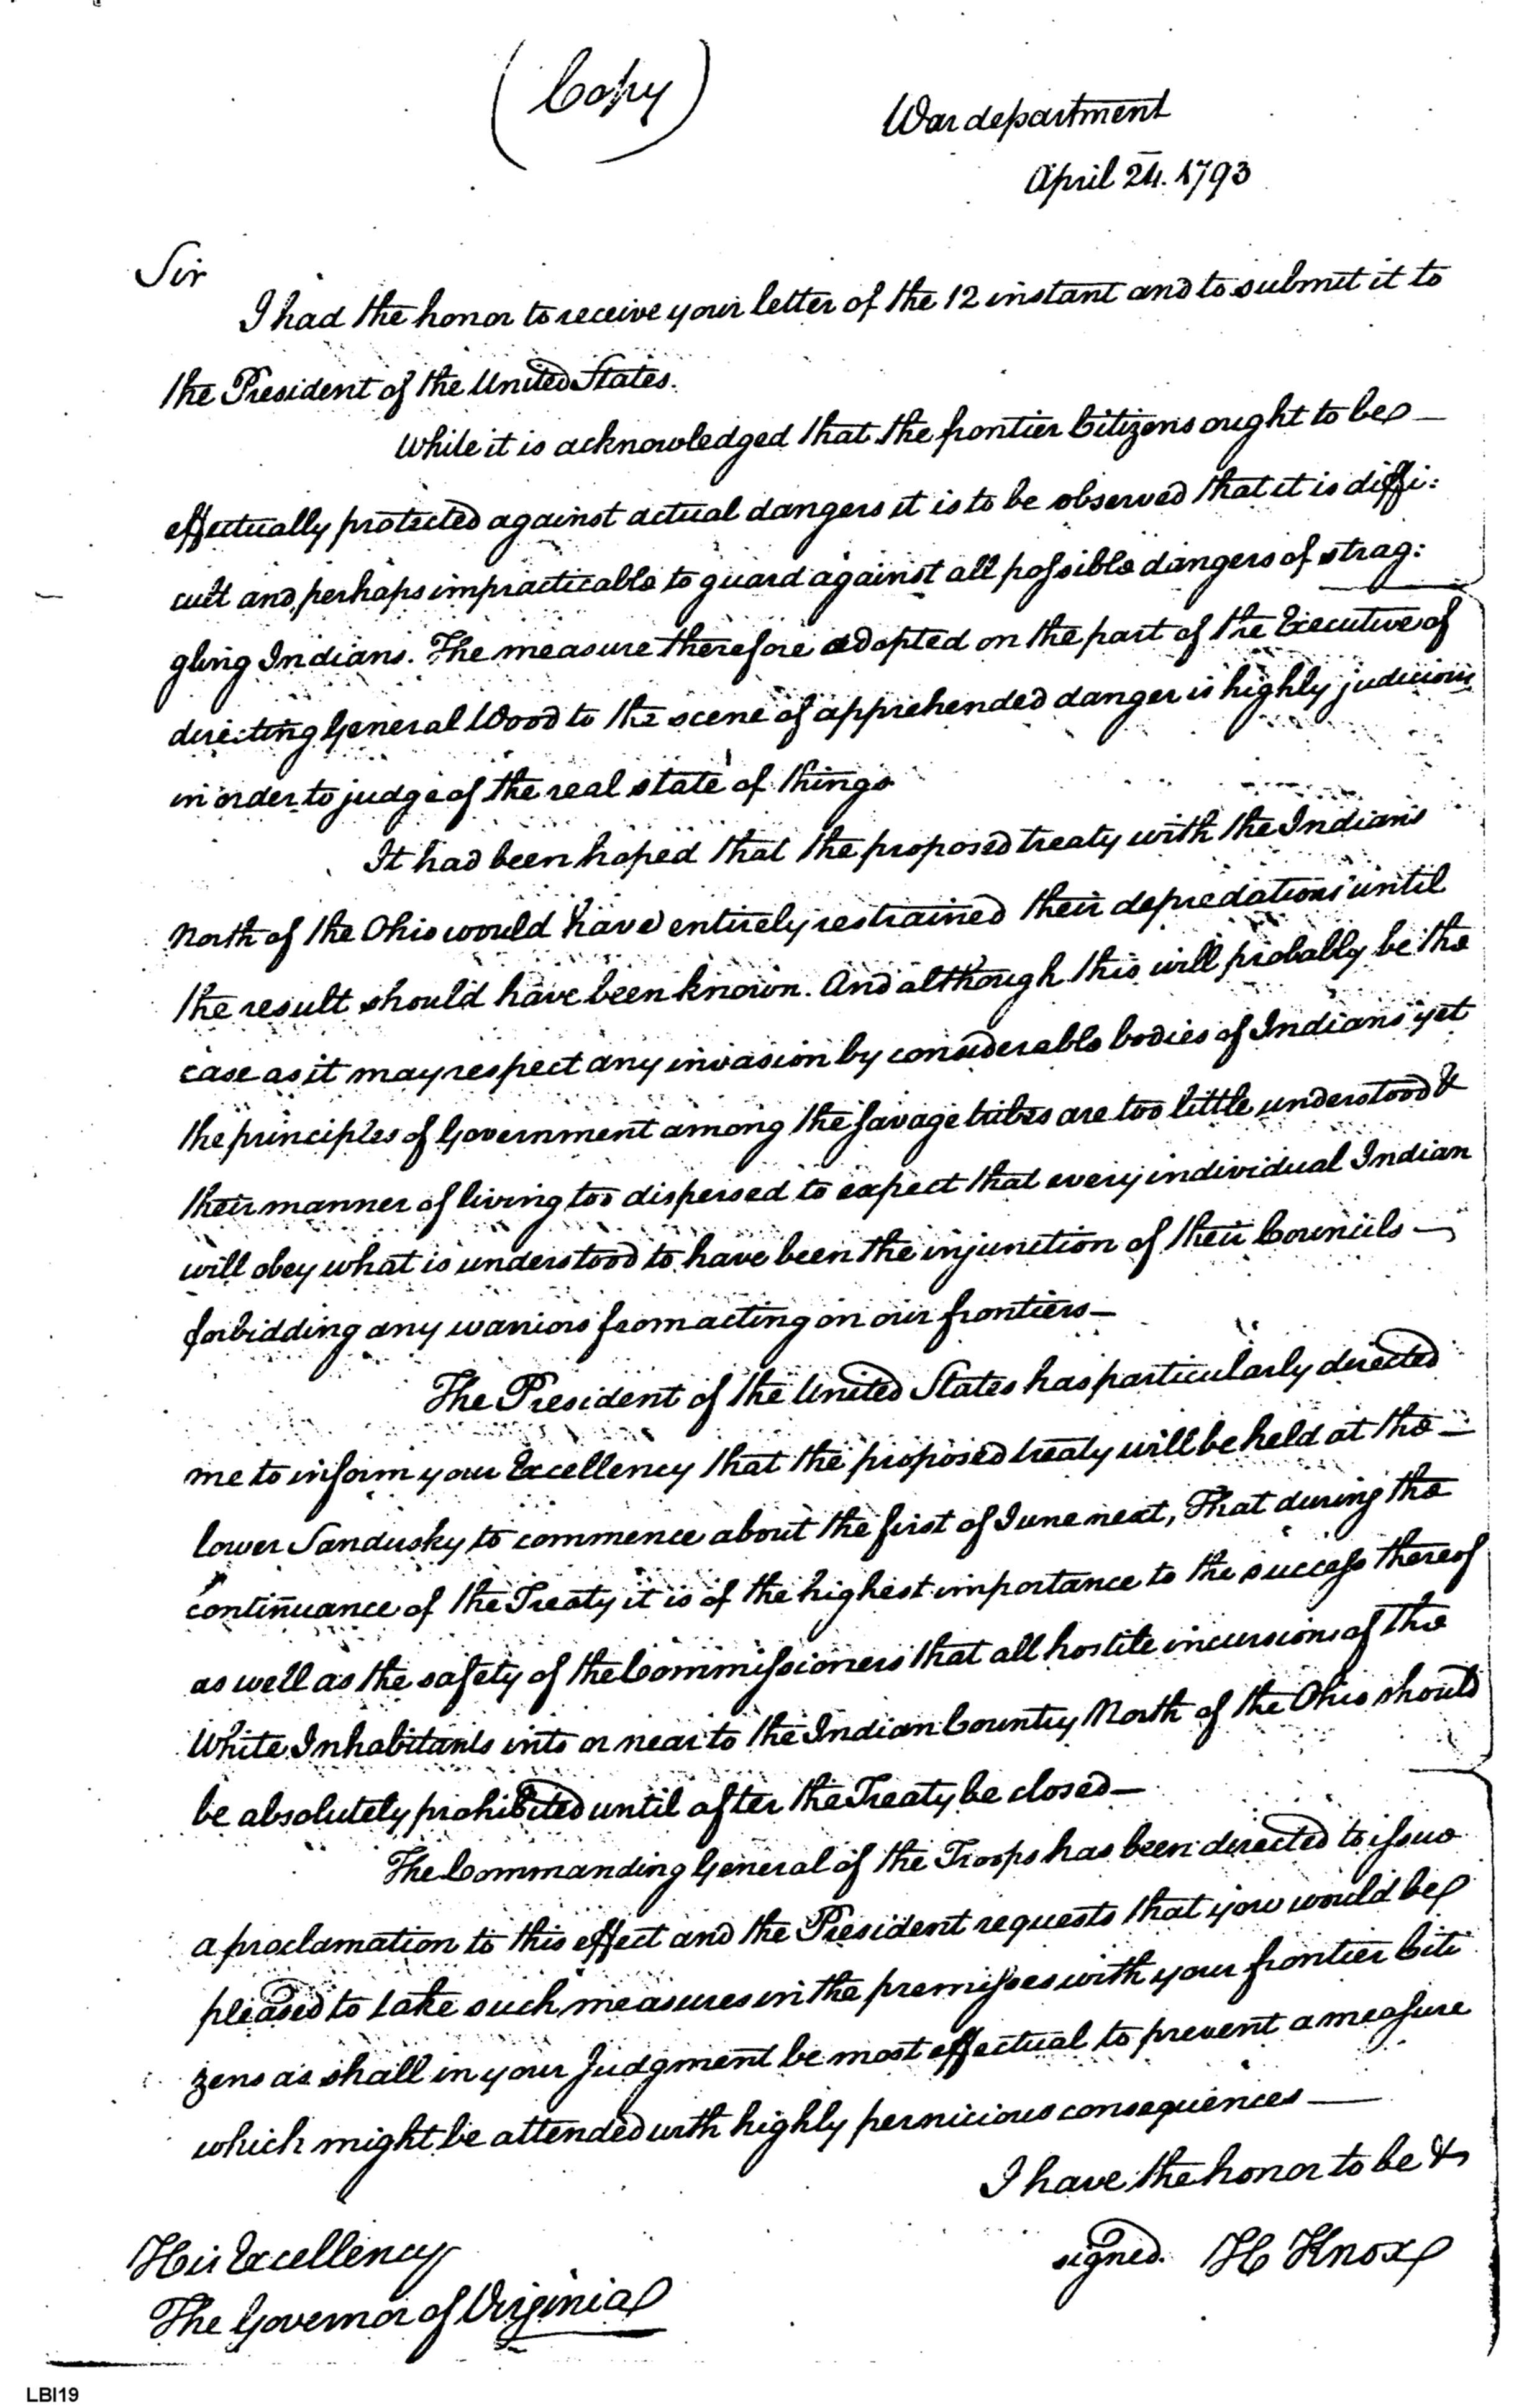 (Copy)
War department
April 24. 1793
Sir
I had the honor to receive your letter of the 12 instant and to submit it to
the President of the United States.
While it is acknowledged that the frontier Citizens ought to be —
effectually protected against actual dangers it is to be observed that it is diffi:
cult and perhaps impracticable to guard against all possible dangers of strag:
gling Indians. The measure therefore adopted on the part of the Executive of
directing General Wood to the scene of apprehended danger is highly judicious
in order to judge of the real state of things
It had been hoped that the proposed treaty with the Indians
North of the Ohio would have entirely restrained their depredations until
the result should have been known. And although this will probably be the
case as it may respect any invasion by considerable bodies of Indians yet
the principles of Government among the savage tribes are too little understood &
their manner of living too dispersed to expect that every individual Indian
will obey what is understood to have been the injunction of their Councils —
forbidding any warriors from acting on our frontiers —
The President of the United States has particularly directed
me to inform your Excellency that the proposed treaty will be held at the —
lower Sandusky to commence about the first of June next, That during the
continuance of the Treaty it is of the highest importance to the success thereof
as well as the safety of the Commissioners that all hostile incursions of the
White Inhabitants into or near to the Indian Country North of the Ohio should
be absolutely prohibited until after the Treaty be closed —
The Commanding General of the Troops has been directed to issue
a proclamation to this effect and the President requests that you would be
pleased to take such measures in the premisses with your frontier Citi
zens as shall in your Judgment be most effectual to prevent a measure
which might be attended with highly pernicious consequences —
I have the honor to be &
signed. H Knox
His Excellency
The Governor of Virginia
LBI19